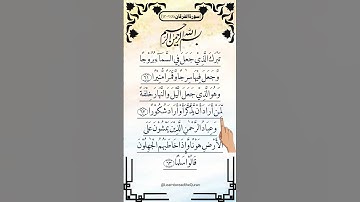 سورة الفرقان
بسم الله الرحمن الرحيم
تَبَٰرَكَ ٱلَّذِي جَعَلَ فِي ٱلسَّمَآءِ بُرُوجًا
وَجَعَلَ فِيهَا سِرَٰجًا وَقَمَرًا مُّنِيرًا ٦١
وَهُوَ ٱلَّذِي جَعَلَ ٱلَّيۡلَ وَٱلنَّهَارَ خِلۡفَةً
لِّمَنۡ أَرَادَ أَن يَذَّكَّرَ أَوۡ أَرَادَ شُكُورًا ٦٢
وَعِبَادُ ٱلرَّحۡمَٰنِ ٱلَّذِينَ يَمۡشُونَ عَلَى
ٱلۡأَرۡضِ هَوۡنًا وَإِذَا خَاطَبَهُمُ ٱلۡجَٰهِلُونَ
قَالُواْ سَلَٰمًا ٦٣